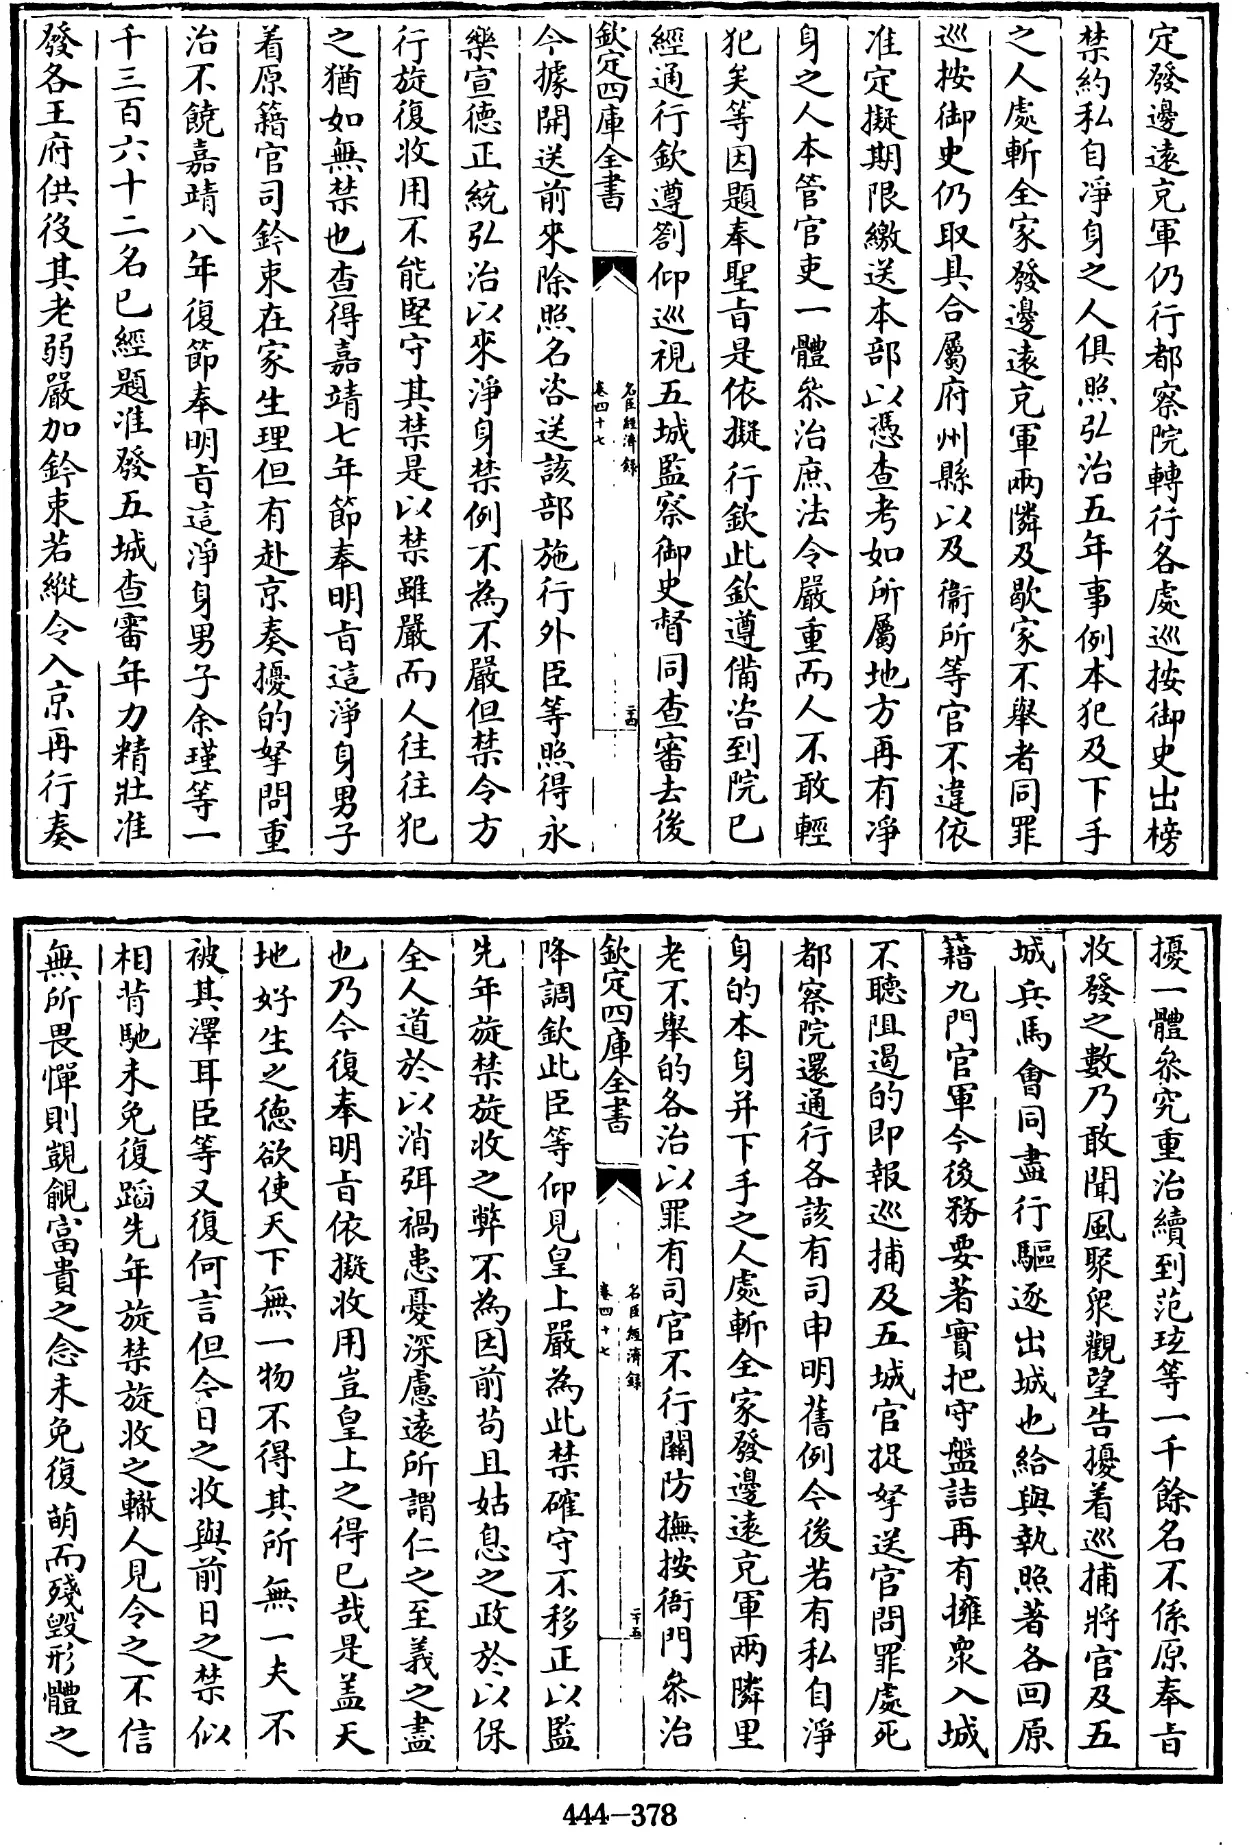 定發邊遠充軍仍行都察院轉行各處巡按御史出榜
禁約私自凈身之人俱照弘治五年事例本犯及下手
之人處斬全家發邊遠充軍兩隣及歇家不舉者同罪
巡按御史仍取具合屬府州縣以及衛所等官不違依
准定擬期限繳送本部以憑查考如所屬地方再有凈
身之人本管官吏一體叅治庶法令嚴重而人不敢輕
犯矣等因題奉聖旨是依擬行欽此欽遵備咨到院已
經通行欽遵劄仰巡視五城監察御史督同查審去後
欽定四庫全書
名臣經濟録
卷四十七
二十四
今據開送前來除照名咨送該部施行外臣等照得永
樂宣德正統弘治以來淨身禁例不為不嚴但禁令方
行旋復收用不能堅守其禁是以禁雖嚴而人往往犯
之猶如無禁也查得嘉靖七年節奉明旨這淨身男子
着原籍官司鈐束在家生理但有赴京奏擾的拏問重
治不饒嘉靖八年復節奉明旨這淨身男子余瑾等一
千三百六十二名已經題准發五城查審年力精壯准
發各王府供役其老弱嚴加鈐束若縱令入京再行奏
擾一體叅究重治續到范玹等一千餘名不係原奉旨
收發之數乃敢聞風聚衆觀望告擾着巡捕將官及五
城兵馬會同盡行驅逐出城也給與執照著各回原
籍九門官軍今後務要著實把守盤詰再有擁衆入城
不聽阻遏的即報巡捕及五城官捉拏送官問罪處死
都察院還通行各該有司申明舊例今後若有私自淨
身的本身并下手之人處斬全家發邊遠充軍兩隣里
老不舉的各治以罪有司官不行關防撫按衙門叅治
欽定四庫全書
名臣經濟録
卷四十七
二十五
降調欽此臣等仰見皇上嚴為此禁確守不移正以監
先年旋禁旋收之弊不為因前苟且姑息之政於以保
全人道於以消弭禍患憂深慮遠所謂仁之至義之盡
也乃今復奉明旨依擬收用豈皇上之得已哉是盖天
地好生之德欲使天下無一物不得其所無一夫不
被其澤耳臣等又復何言但今日之收與前日之禁似
相背馳未免復蹈先年旋禁旋收之轍人見令之不信
無所畏憚則覬覦富貴之念未免復萌而殘毀形體之
444-378